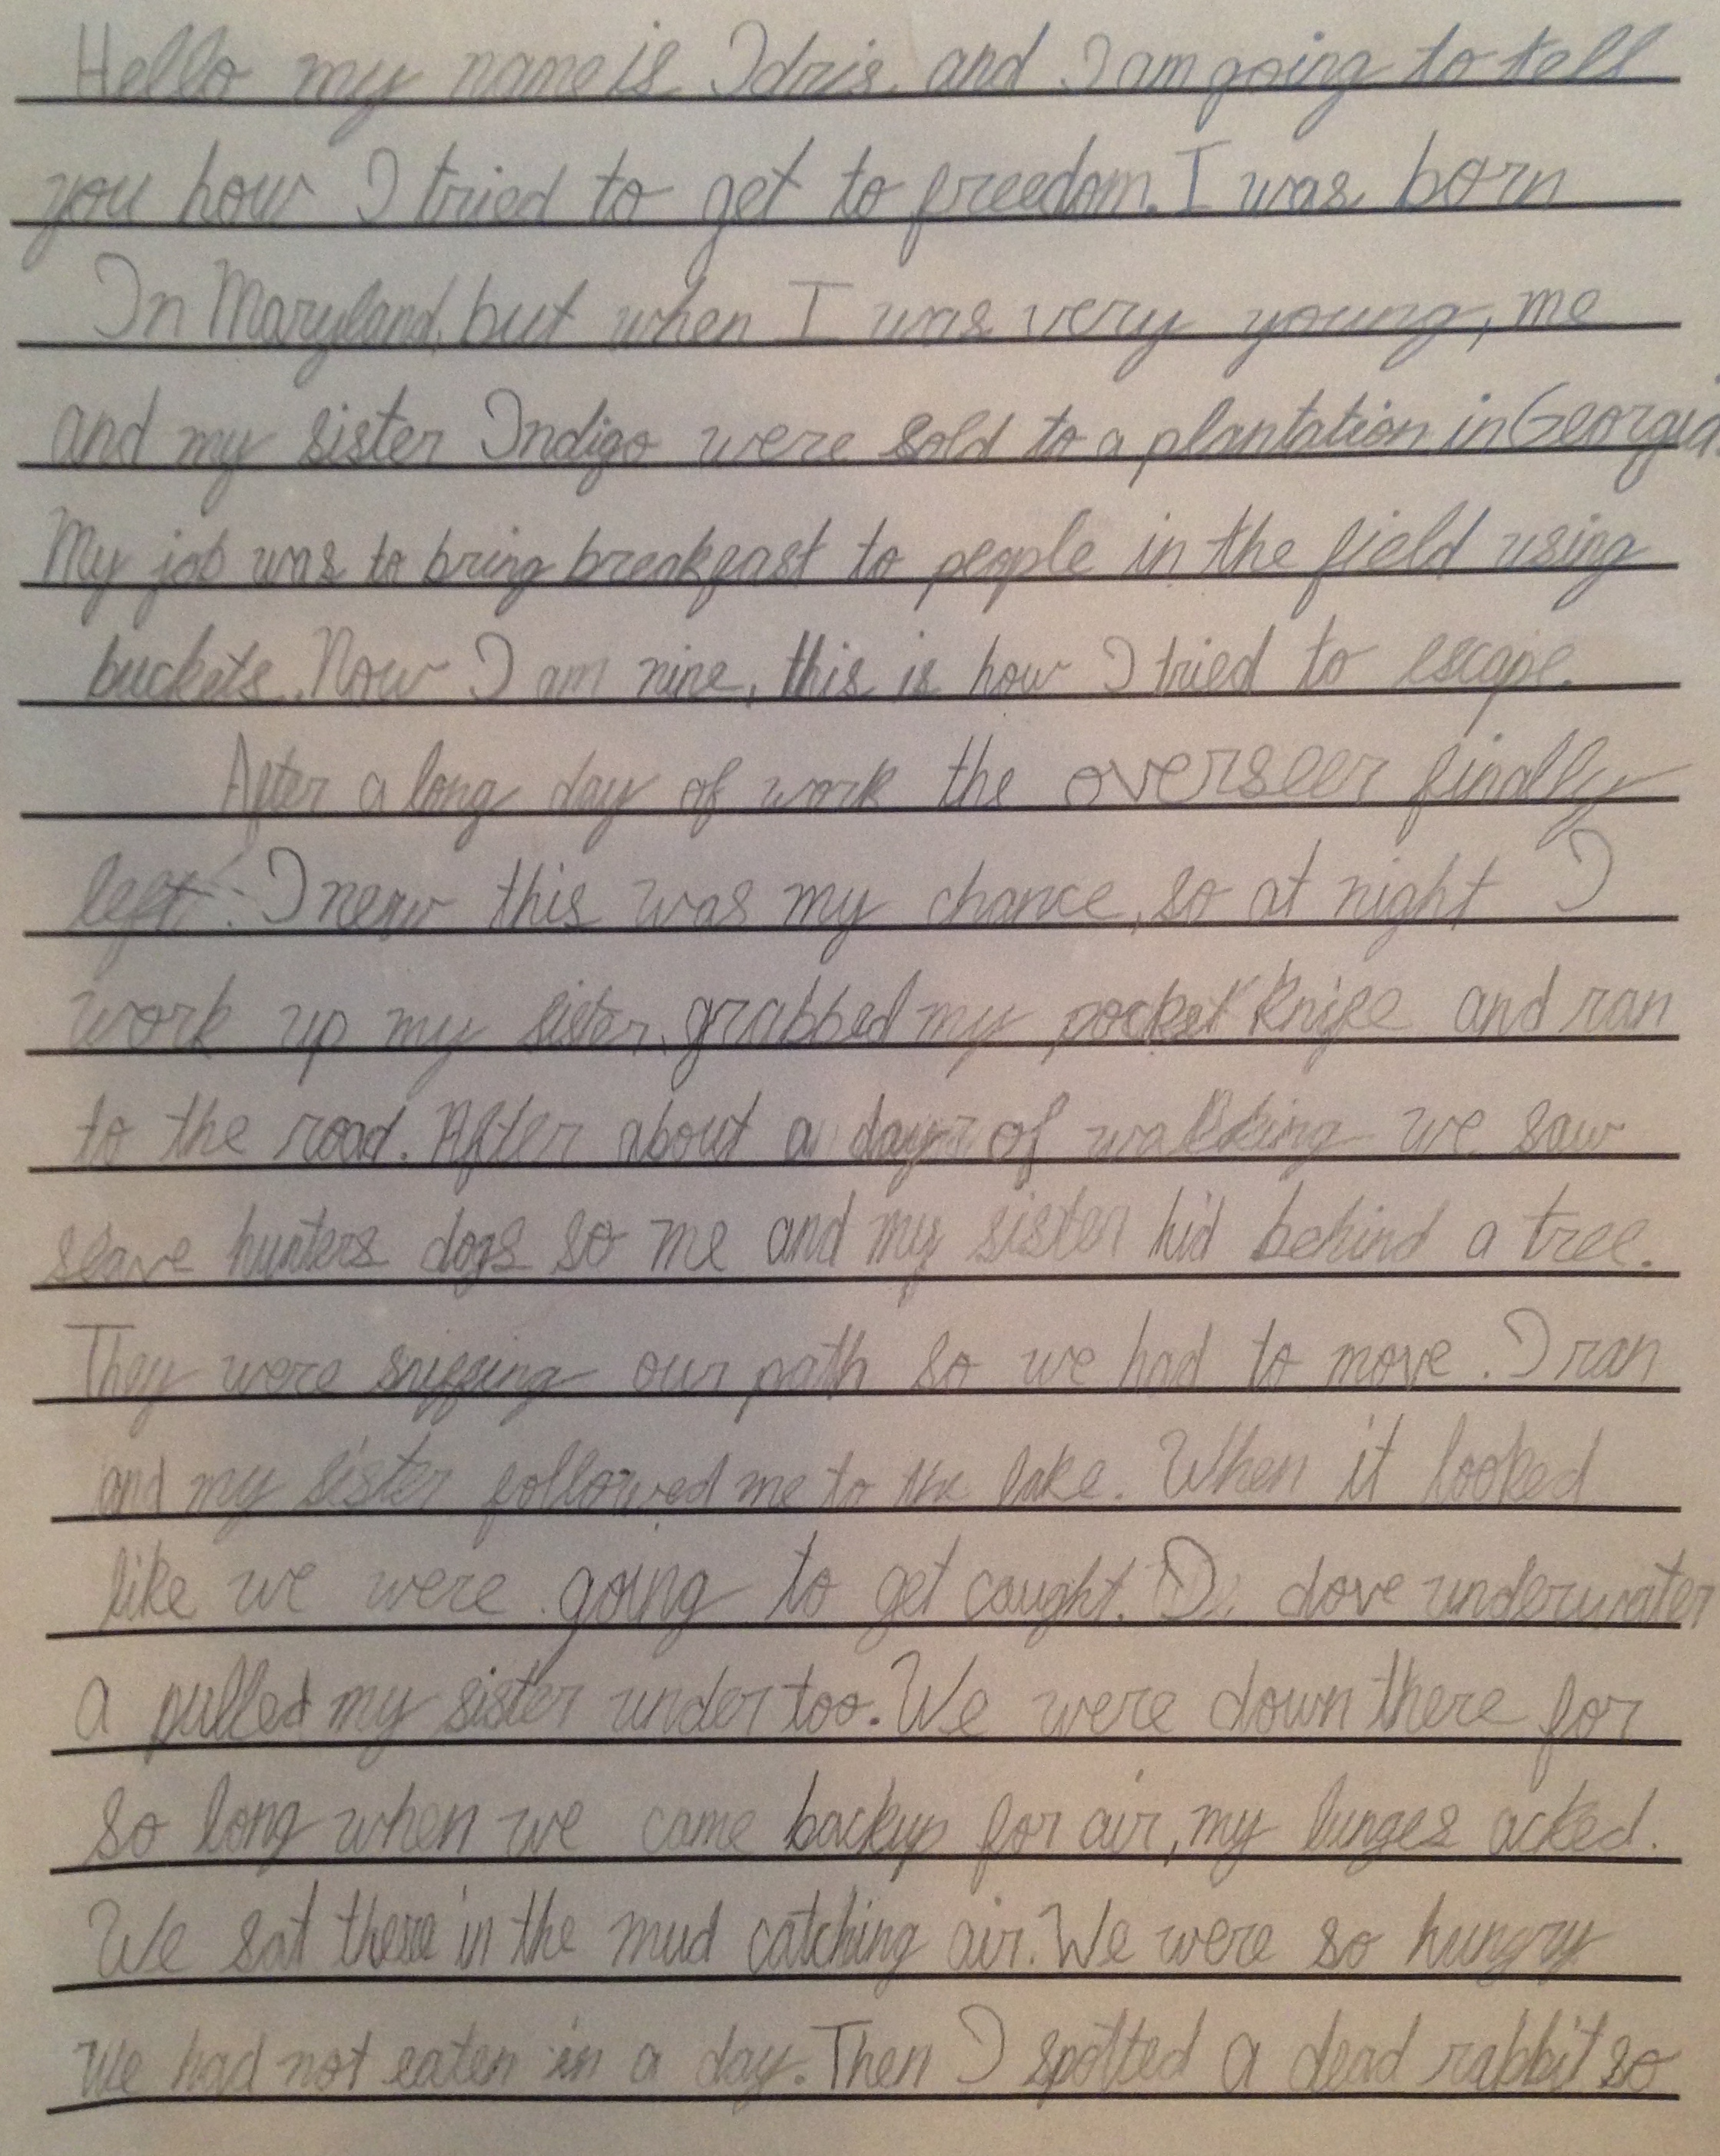 Hello my name is Idris and I am going to tell
you how I tried to get to freedom. I was born
In Maryland, but when I was very young, me
and my sister Indigo were sold to a plantation in Georgia.
My job was to bring breakfast to people in the field using
buckets. Now I am nine, this is how I tried to escape.
After a long day of work the overseer finally
left. I new this was my chance, so at night I
work up my sister, grabbed my pocket knife and ran
to the road. After about a day of walking we saw
slave hunters dogs so me and my sister hid behind a tree.
They were sniffing our path so we had to move. I ran
and my sister followed me to the lake. When it looked
like we were going to get caught. I dove underwater
a pulled my sister under too. We were down there for
so long when we came back up for air, my lunges acked.
We sat there in the mud catching air. We were so hungry
we had not eaten in a day. Then I spotted a dead rabbit so